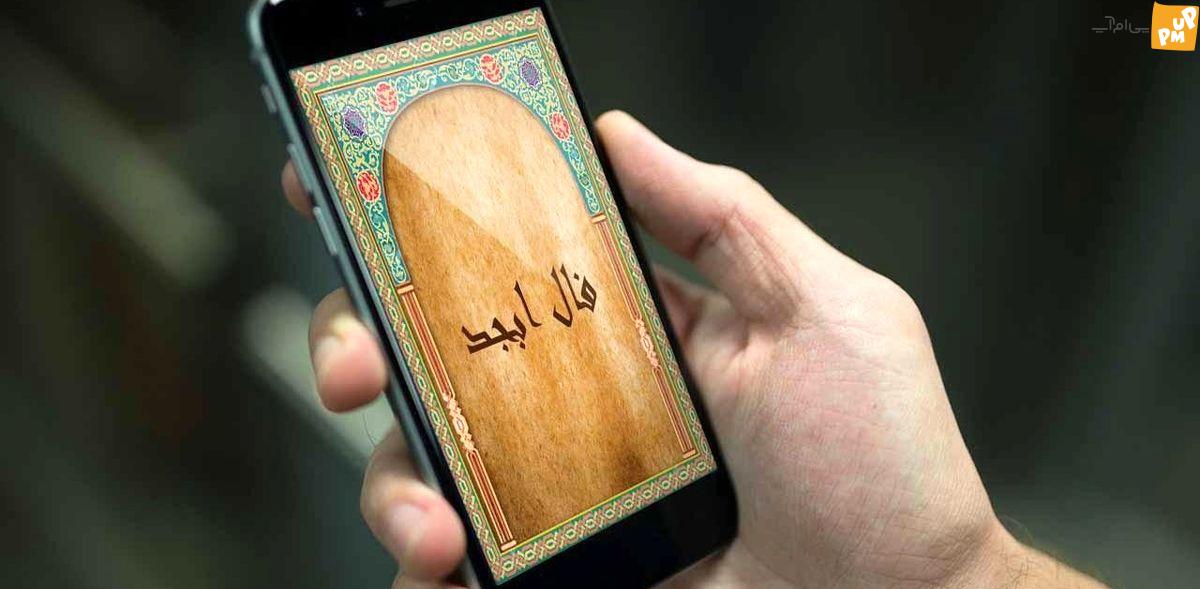 فال ابجد
پی‌ام‌آپ
PM UP